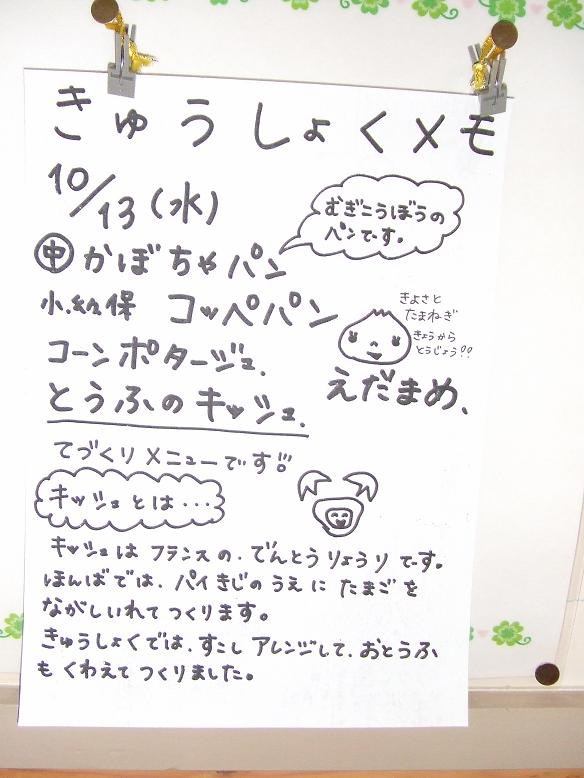 きゅうしょくメモ
10/13(水)
むぎこうぼうの
パンです。
㊥かぼちゃパン
小.幼.保 コッペパン
きよさと
たまねぎ
きょうから
とうじょう!!
コーンポタージュ.
えだまめ、
とうふのキッシュ.
てづくりメニューです!!
キッシュとは・・・
キッシュはフランスの、でんとうりょうりです。
ほんばでは、パイきじのうえにたまごを
ながしいれてつくります。
きゅうしょくでは、すこしアレンジして、おとうふ
もくわえてつくりました。